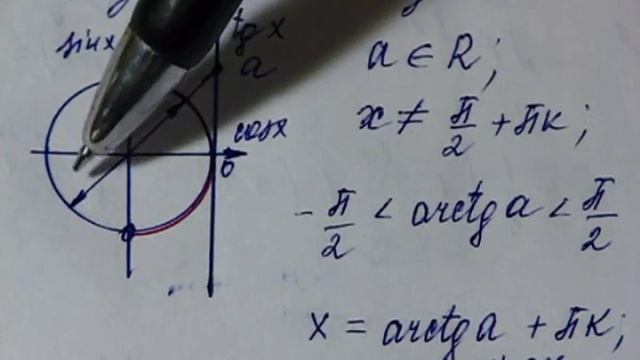 sinx
tg x
a
cosx
0
a ∈ R;
x ≠ π/2 + πk;
-π/2 < arctg a < π/2
x = arctg a + πk;